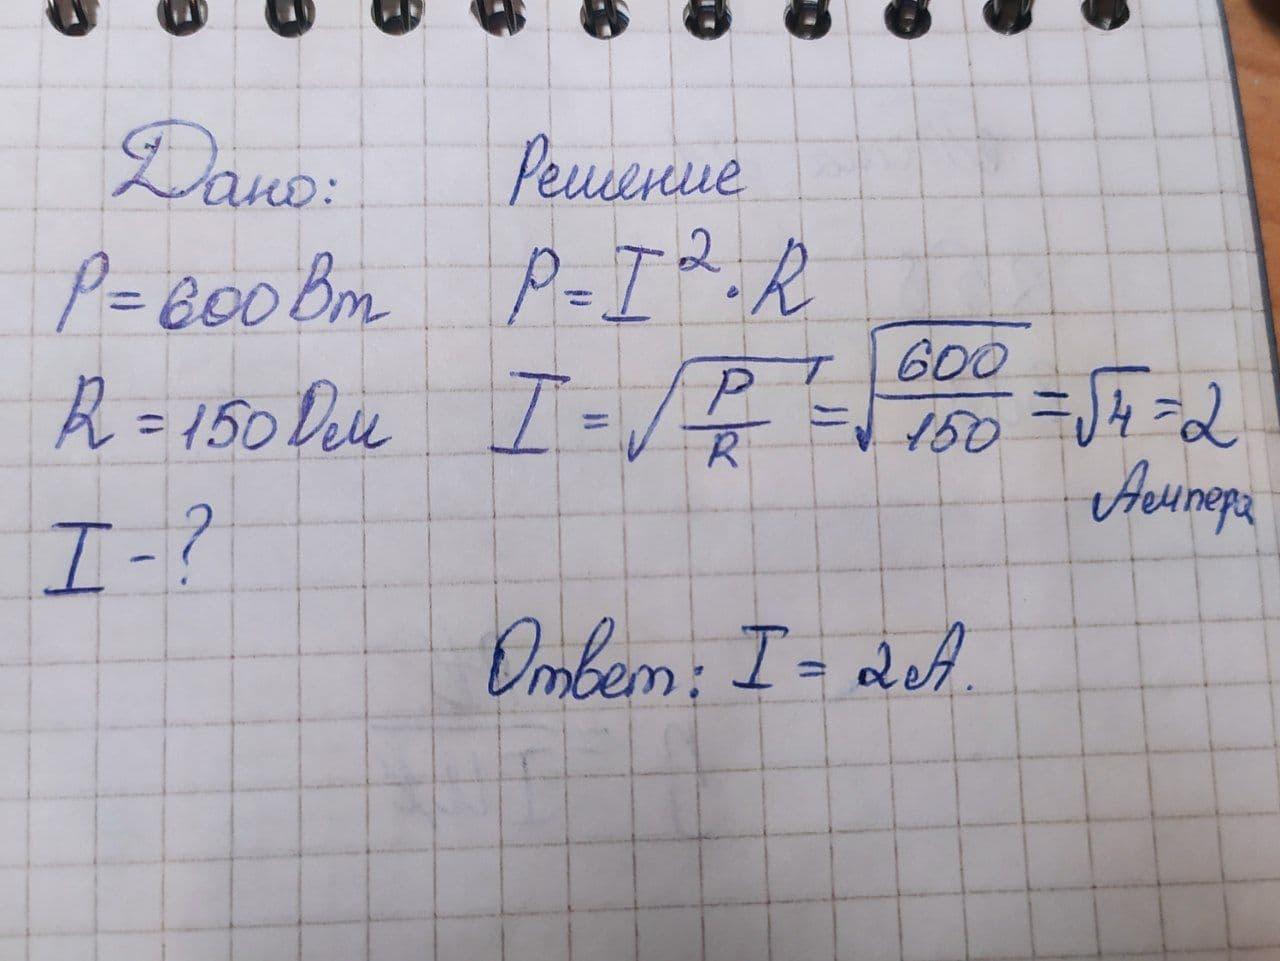 Дано:
P = 600 Вт
R = 150 Ом
I - ?
Решение
P = I² · R
I = √(P/R) = √(600/150) = √4 = 2
Ампера
Ответ: I = 2 А.